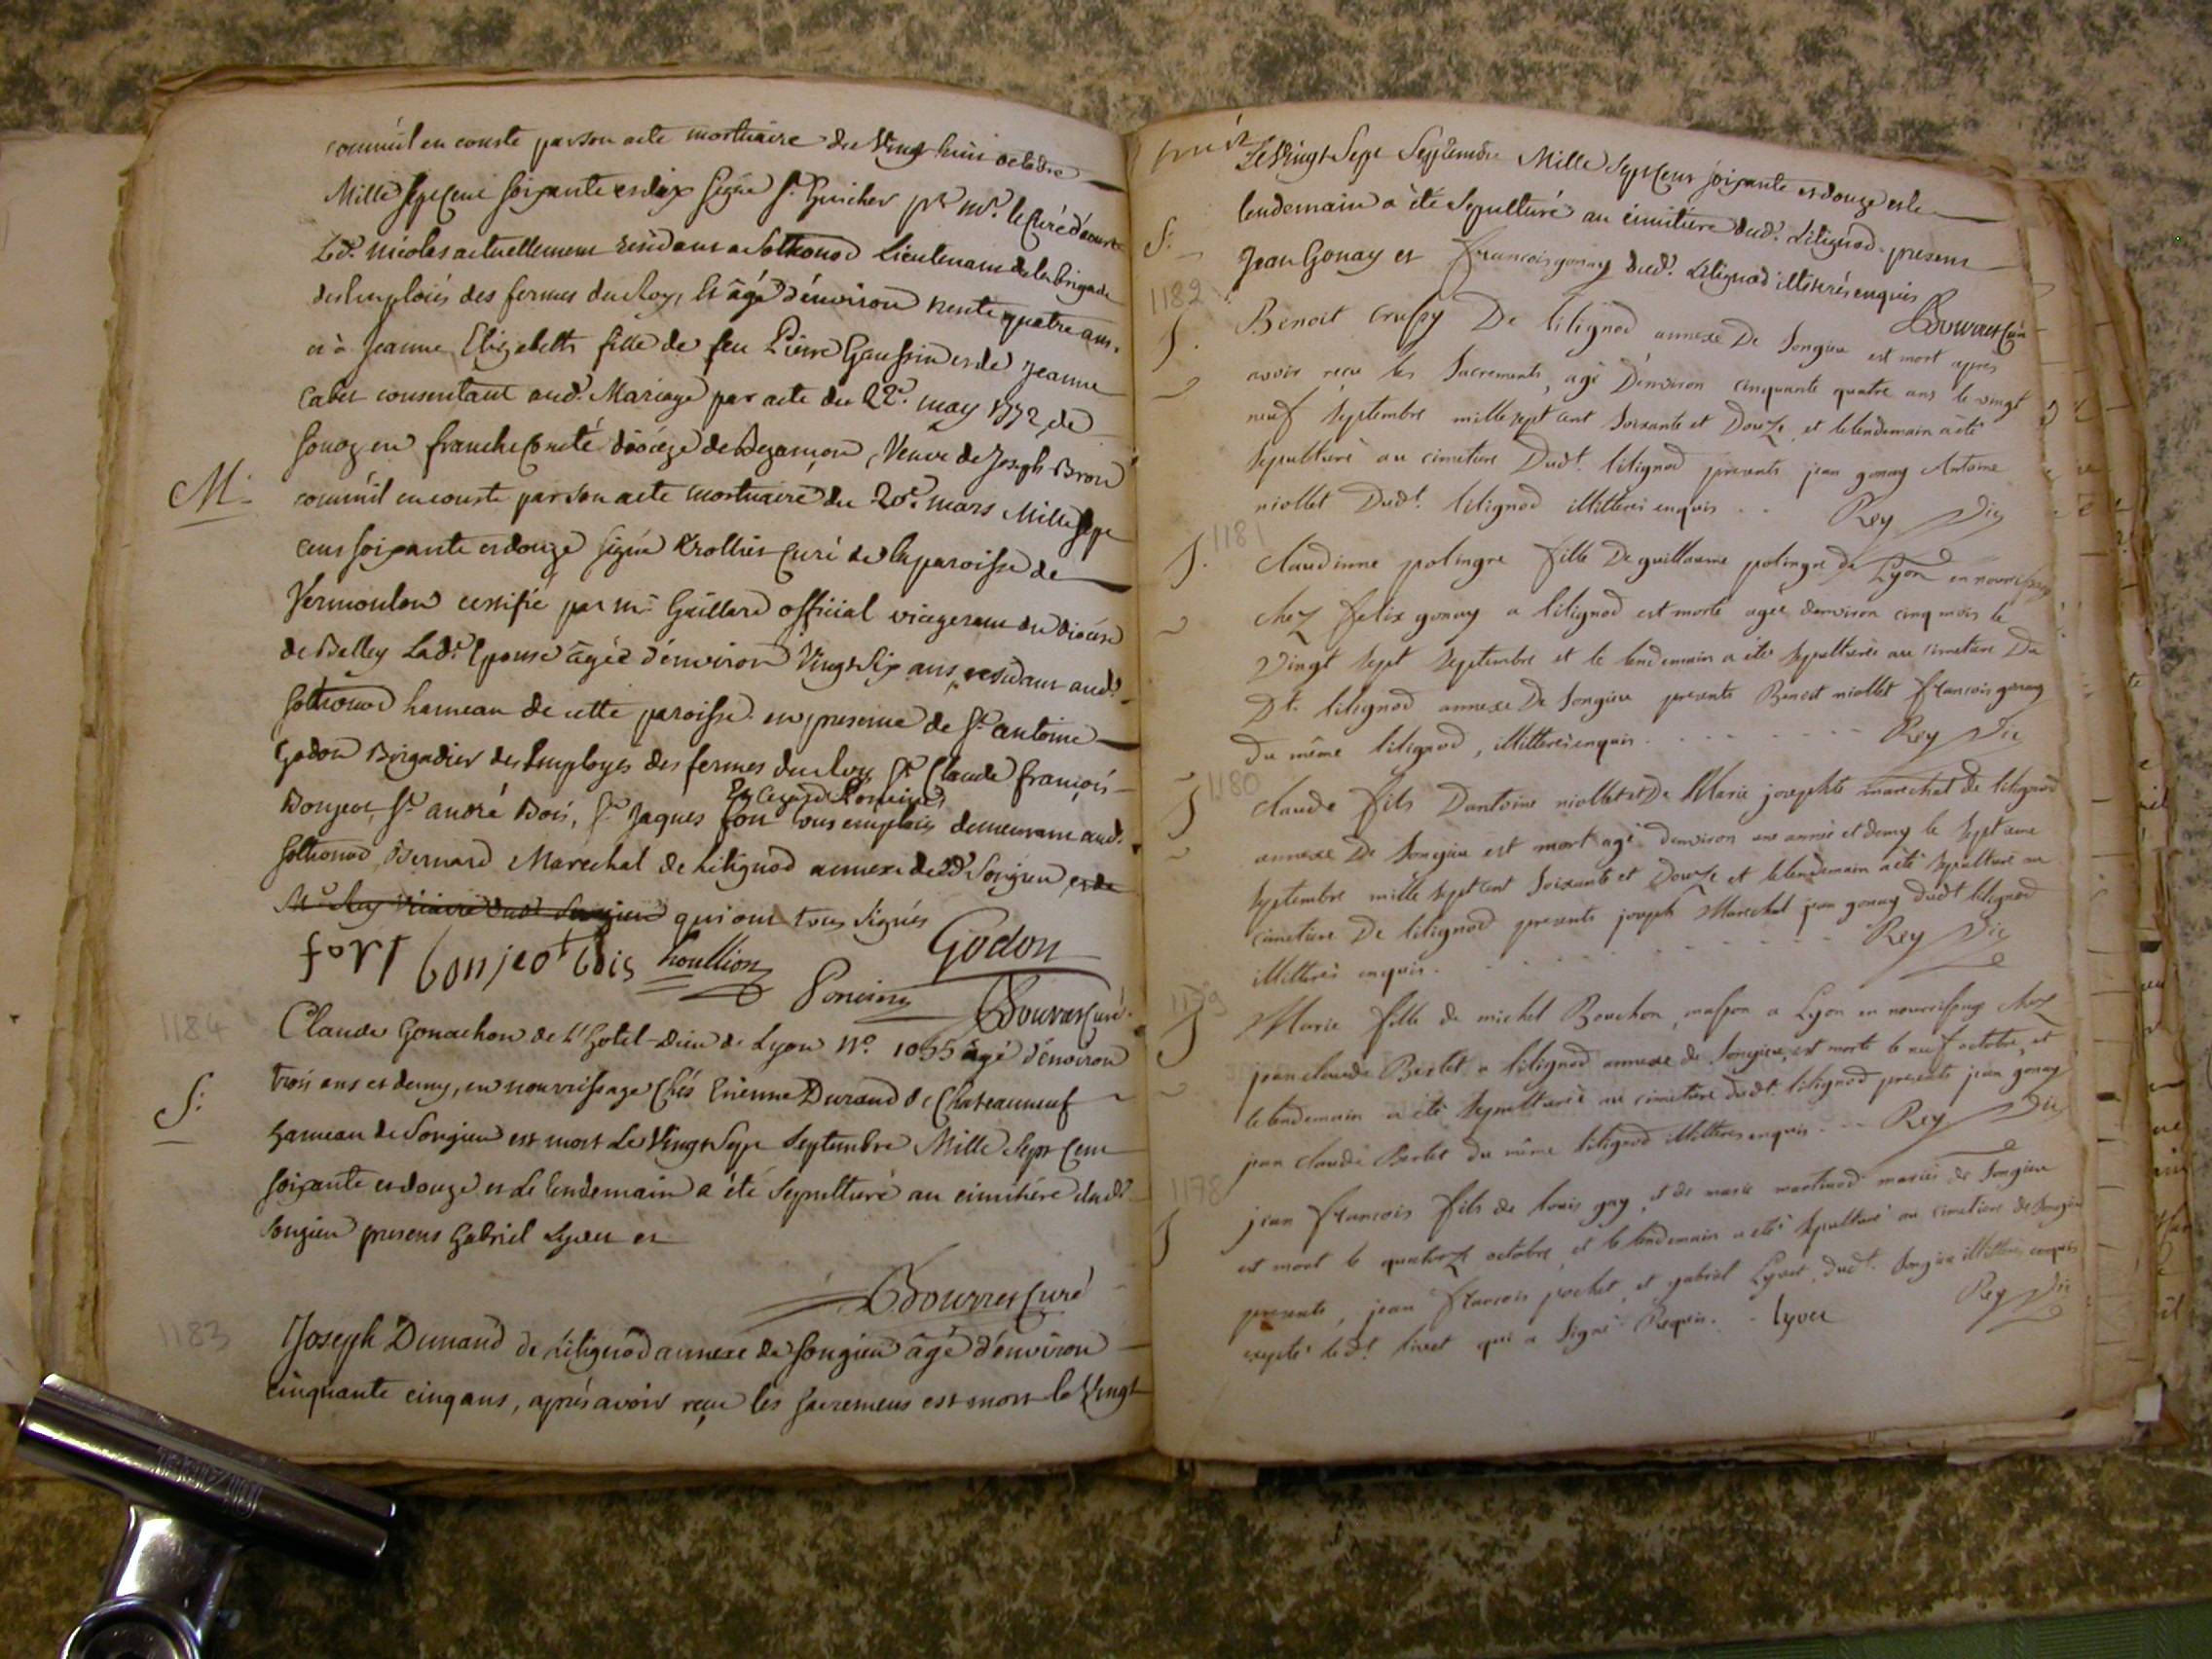 comme il en conste par son acte mortuaire du Vingt huit octobre
Mille Sept Cent soixante et dix signé Sr. Guicher pr mr. le Curé
Led. Nicolas actuellement résidant a Sothonod Lieutenant de la brigade
des Emploiés des fermes du Roy, Et âgé d'environ trente quatre ans.
et à Jeanne Elizabeth fille de feu Pierre Gaussin et de Jeanne
Cabet consentant aud. Mariage par acte du 22e. may 1772 de
en franche Comté diocèze de Bezançon, Veuve de Joseph Bron
M. comme il en conste par son acte mortuaire du 20e. mars Mille Sept
Cent soixante et douze signé Curé de la paroisse de
certifié par mr Guillard official vicegerent du diocèse
de Belley Lad. Epouse âgée d'environ Vingt Six ans residant aud.
Sothonod hameau de cette paroisse en presence de Sr. antoine
Godon Brigadier des Employés des fermes du Roy Sr Claude françois
Bonjeot, Sr. andré Bois, Sr. Jaques fort tous emploiés demeurant aud.
Sothonod, Bernard Maréchal de Litignod annexe dud. Songieu et de
Mr Rey Vicaire dud. Songieu qui ont tous signés
fort bonjeot bois Godon
Poncin Bouvier Curé.
1184
Claude Gonachon de l'hotel-dieu de Lyon N°. 1055 âgé d'environ
trois ans et demy, en nourrissage Chés Etienne Durand de Chateauneuf
S. hameau de Songieu est mort Le Vingt Sept Septembre Mille Sept Cent
soixante et douze et Le lendemain a été Sepulturé au cimitière dud.
Songieu presens Gabriel Lyvet et
Bouvier Curé
1183
Joseph Dunand de Litignod annexe de Songieu âgé d'environ
cinquante cinq ans, après avoir reçu les sacremens est mort le Vingt
Le Vingt Sept Septembre Mille Sept Cent soixante et douze et le
lendemain a été Sepulturé au cimitière dud. Litignod presens
S. Jean Gonay et francois gonay dud. Litignod illitterés enquis
Bouvier Curé
1182
S. Benoit Crussy De litignod annexe De Songieu est mort apres
avoir recu les Sacrements, agé Denviron cinquante quatre ans le vingt
neuf Septembre mille sept cent Soixante et Douze, et le lendemain a été
Sepulturé au cimetiere Dudt. litignod presents jean gonay Antoine
niollet Dudt. litignod illitteres enquis . . Rey Vic
1181
S. Claudinne polingre fille De guillaume polingre de Lyon en nourrissage
chez felix gonay a litignod est morte agée denviron cinq mois le
Vingt sept Septembre et le lendemain a été Sepulturée au cimetiere Du
Dt. litignod annexe De Songieu presents Benoit niollet francois gonay
du même litignod, illitteres enquis . . . . . . Rey Vic
1180
S Claude fils Dantoine niollet et De Marie josephte marechal de litignod
annexe De Songieu est mort agé denviron une année et demy le Sept
Septembre mille Sept cent Soixante et Douze et le lendemain a été Sepulturé au
cimetiere De litignod presents joseph Marechal jean gonay dudt litignod
illitterés enquis . . . . . . . Rey Vic
1179
S Marie fille de michel Bouchon, masson a Lyon en nourrissage chez
jean claude Berlet a litignod annexe de Songieu, est morte le neuf octobre, et
le lendemain a été Sepulturée au cimetiere dudt. litignod presents jean gonay
jean claude Berlet du même litignod illitteres enquis . . . Rey Vic
1178
S jean francois fils de louis gay, et de marie martinod mariés de Songieu
est mort le quatorze octobre, et le lendemain a été Sepulturé au cimetiere de Songieu
presents, jean francois pochet, et gabriel Lyvet, dudt. Songieu illitterés enquis
excepté ledt. livet qui a Signé Requis. . lyvet Rey Vic